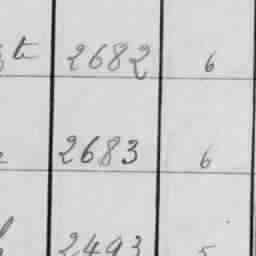 t 2682 6
2683 6
2493 5